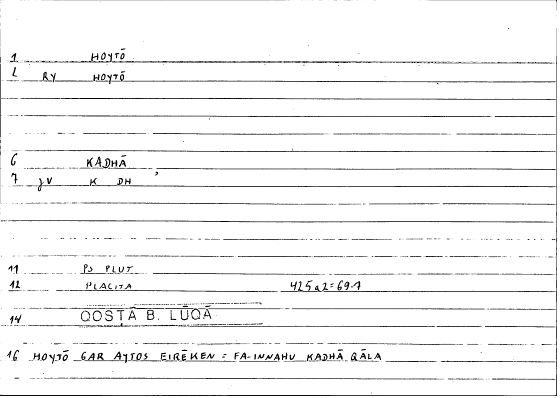 1 HOYTŌ
L RY HOYTŌ
6 KADHĀ
7 JV K DH ʾ
11 PS PLUT
12 PLACITA 425a2=69.1
14 QOSṬĀ B. LŪQĀ
16 HOYTŌ GAR AYTOS EIRĒKEN = FA-INNAHU KADHĀ QĀLA